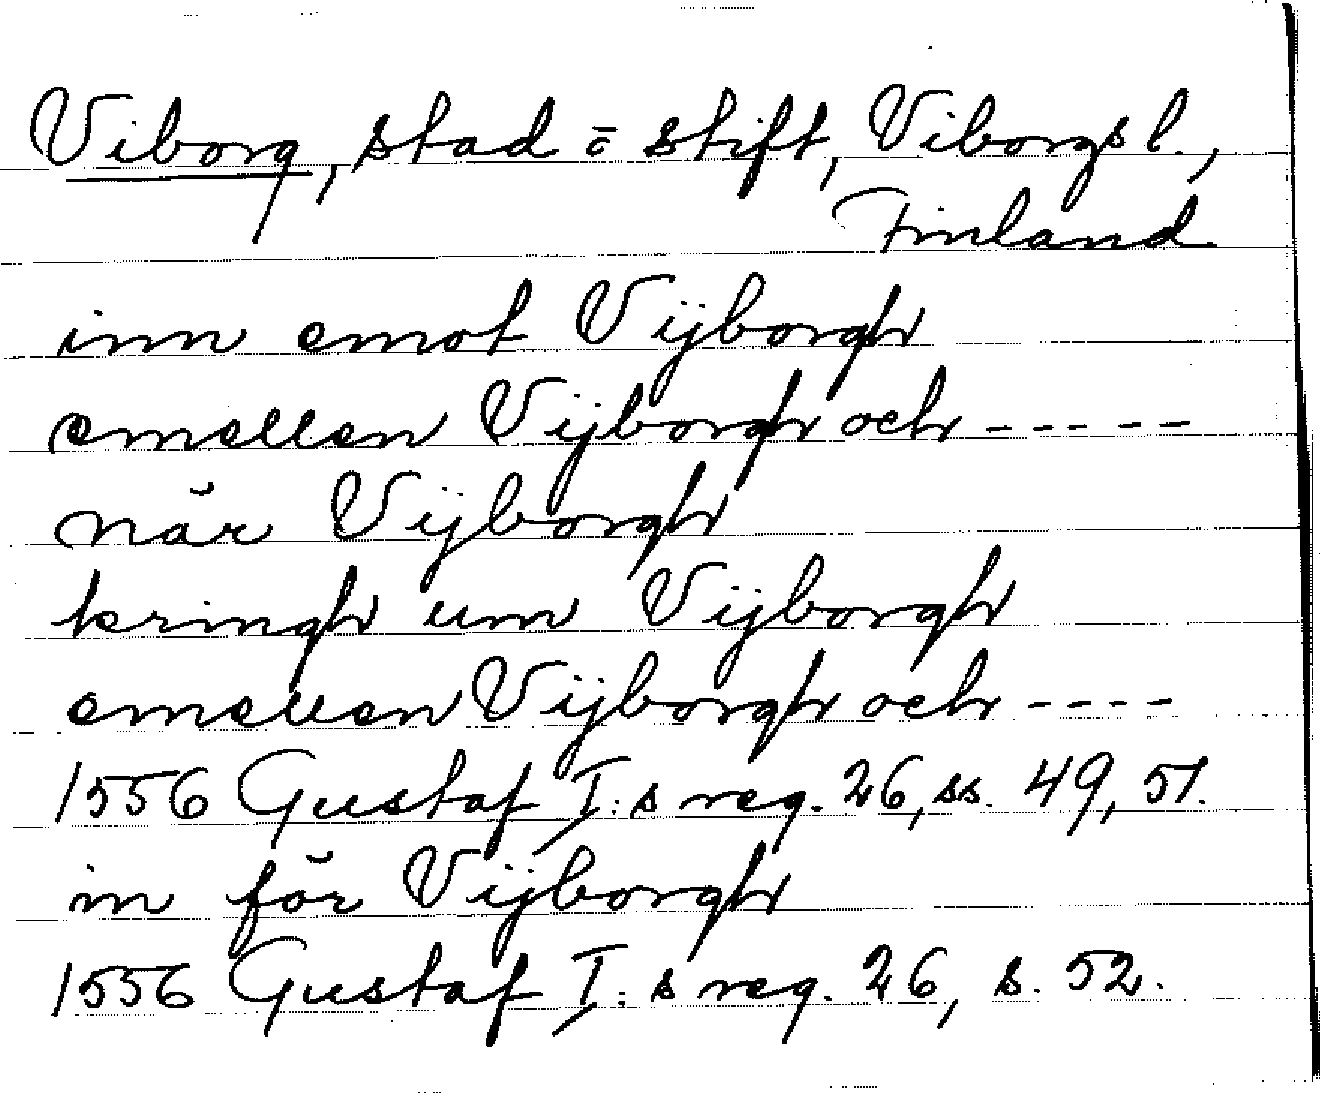 Viborg, stad o stift, Viborgs l.,
Finland
inn emot Vijborgh
emellen Vijborgh och - - - - -
når Vijborgh
kringh um Vijborgh
emellen Vijborgh och - - - -
1556 Gustaf I:s reg. 26, ss. 49, 51.
in för Vijborgh
1556 Gustaf I:s reg. 26, s. 52.